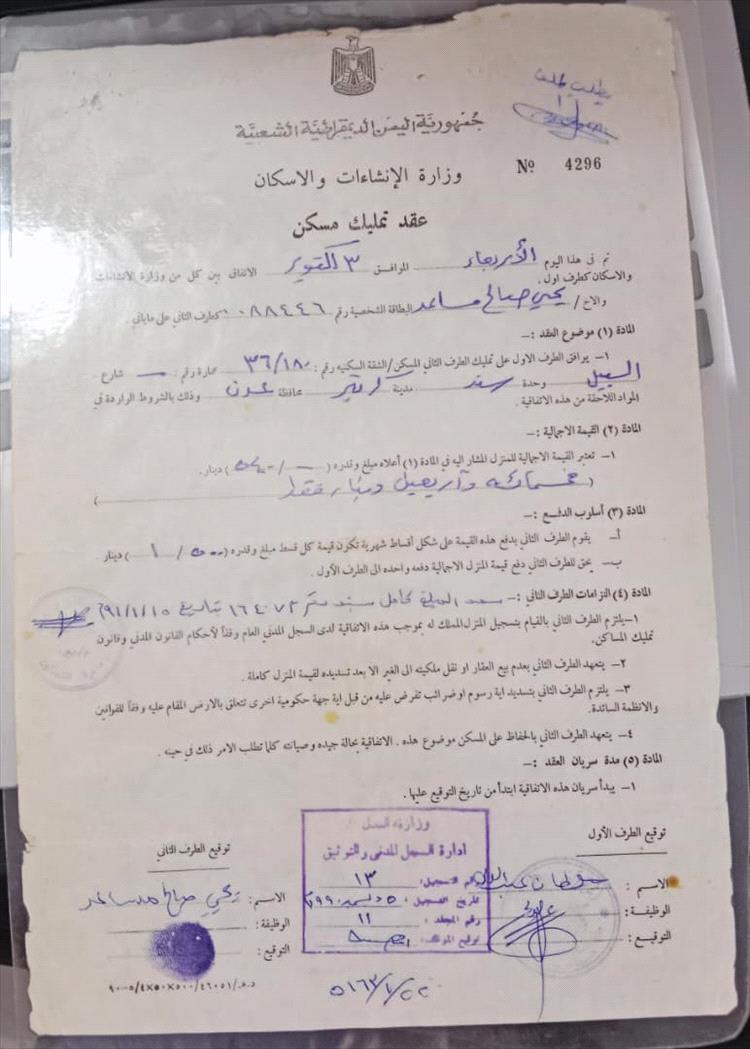 يطلب ملف
جمهورية اليمن الديمقراطية الشعبية
وزارة الإنشاءات والاسكان
№ 4296
عقد تمليك مسكن
تم في هذا اليوم الأربعاء الموافق ٣ اكتوبر الاتفاق بين كل من وزارة الانشاءات
والاسكان كطرف اول.
والاخ / يحيى صالح مساعد البطاقة الشخصية رقم ٠٨٨٤٤٦ كطرف الثاني على ماياتي.
المادة (١) موضوع العقد :-
١- يوافق الطرف الاول على تمليك الطرف الثاني المسكن/الشقة السكنيه رقم: ٣٦/١٨٠ عمارة رقم: — شارع
السبيل وحدة سند مدينة كريتر محافظة عدن وذلك بالشروط الواردة في
المواد اللاحقة من هذه الاتفاقية .
المادة (٢) القيمة الاجمالية :-
١- تعتبر القيمة الاجمالية للمنزل المشار اليه في المادة (١) أعلاه مبلغ وقدره (٥٤٠/—) دينار.
(خمسمائه وأربعين دينار فقط)
المادة (٣) أسلوب الدفع :-
أ- يقوم الطرف الثاني بدفع هذه القيمة على شكل أقساط شهرية تكون قيمة كل قسط مبلغ وقدره (٥٠٠/١) دينار
ب- يحق للطرف الثاني دفع قيمة المنزل الاجمالية دفعه واحده الى الطرف الأول .
المادة (٤) التزامات الطرف الثاني :- سدد المبلغ كامل بسند ١٦٤٠٧٢ بتاريخ ٩١/١/١٥
١- يلتزم الطرف الثاني بالقيام بتسجيل المنزل المملك له بموجب هذه الاتفاقية لدى السجل المدني العام وفقاً لأحكام القانون المدني وقانون
تمليك المساكن.
٢- يتعهد الطرف الثاني بعدم بيع العقار او نقل ملكيته الى الغير الا بعد تسديده لقيمة المنزل كاملة .
٣- يلتزم الطرف الثاني بتسديد اية رسوم اوضرائب تفرض عليه من قبل اية جهة حكومية اخرى تتعلق بالارض المقام عليه وفقاً للقوانين
والانظمة السائدة.
٤- يتعهد الطرف الثاني بالحفاظ على المسكن موضوع هذه . الاتفاقية بحالة جيده وصيانته كلما تطلب الامر ذلك في حينه .
المادة (٥) مدة سريان العقد :-
١- يبدأ سريان هذه الاتفاقية ابتدأ من تاريخ التوقيع عليها.
توقيع الطرف الأول
الاسم : سلطان
الوظيفة :
التوقيع :
وزارة العدل
ادارة السجل المدني والتوثيق
رقم التسجيل : ١٣
تاريخ التسجيل : ٥ ديسمبر ١٩٩٠
رقم المجلد : ١١
توقيع الموثق :
توقيع الطرف الثاني
الاسم : يحيى صالح مساعد
الوظيفة :
التوقيع :
د.ه./٤٦٠٥١/٥٠٠×٥٠×٤/٥-٩٠